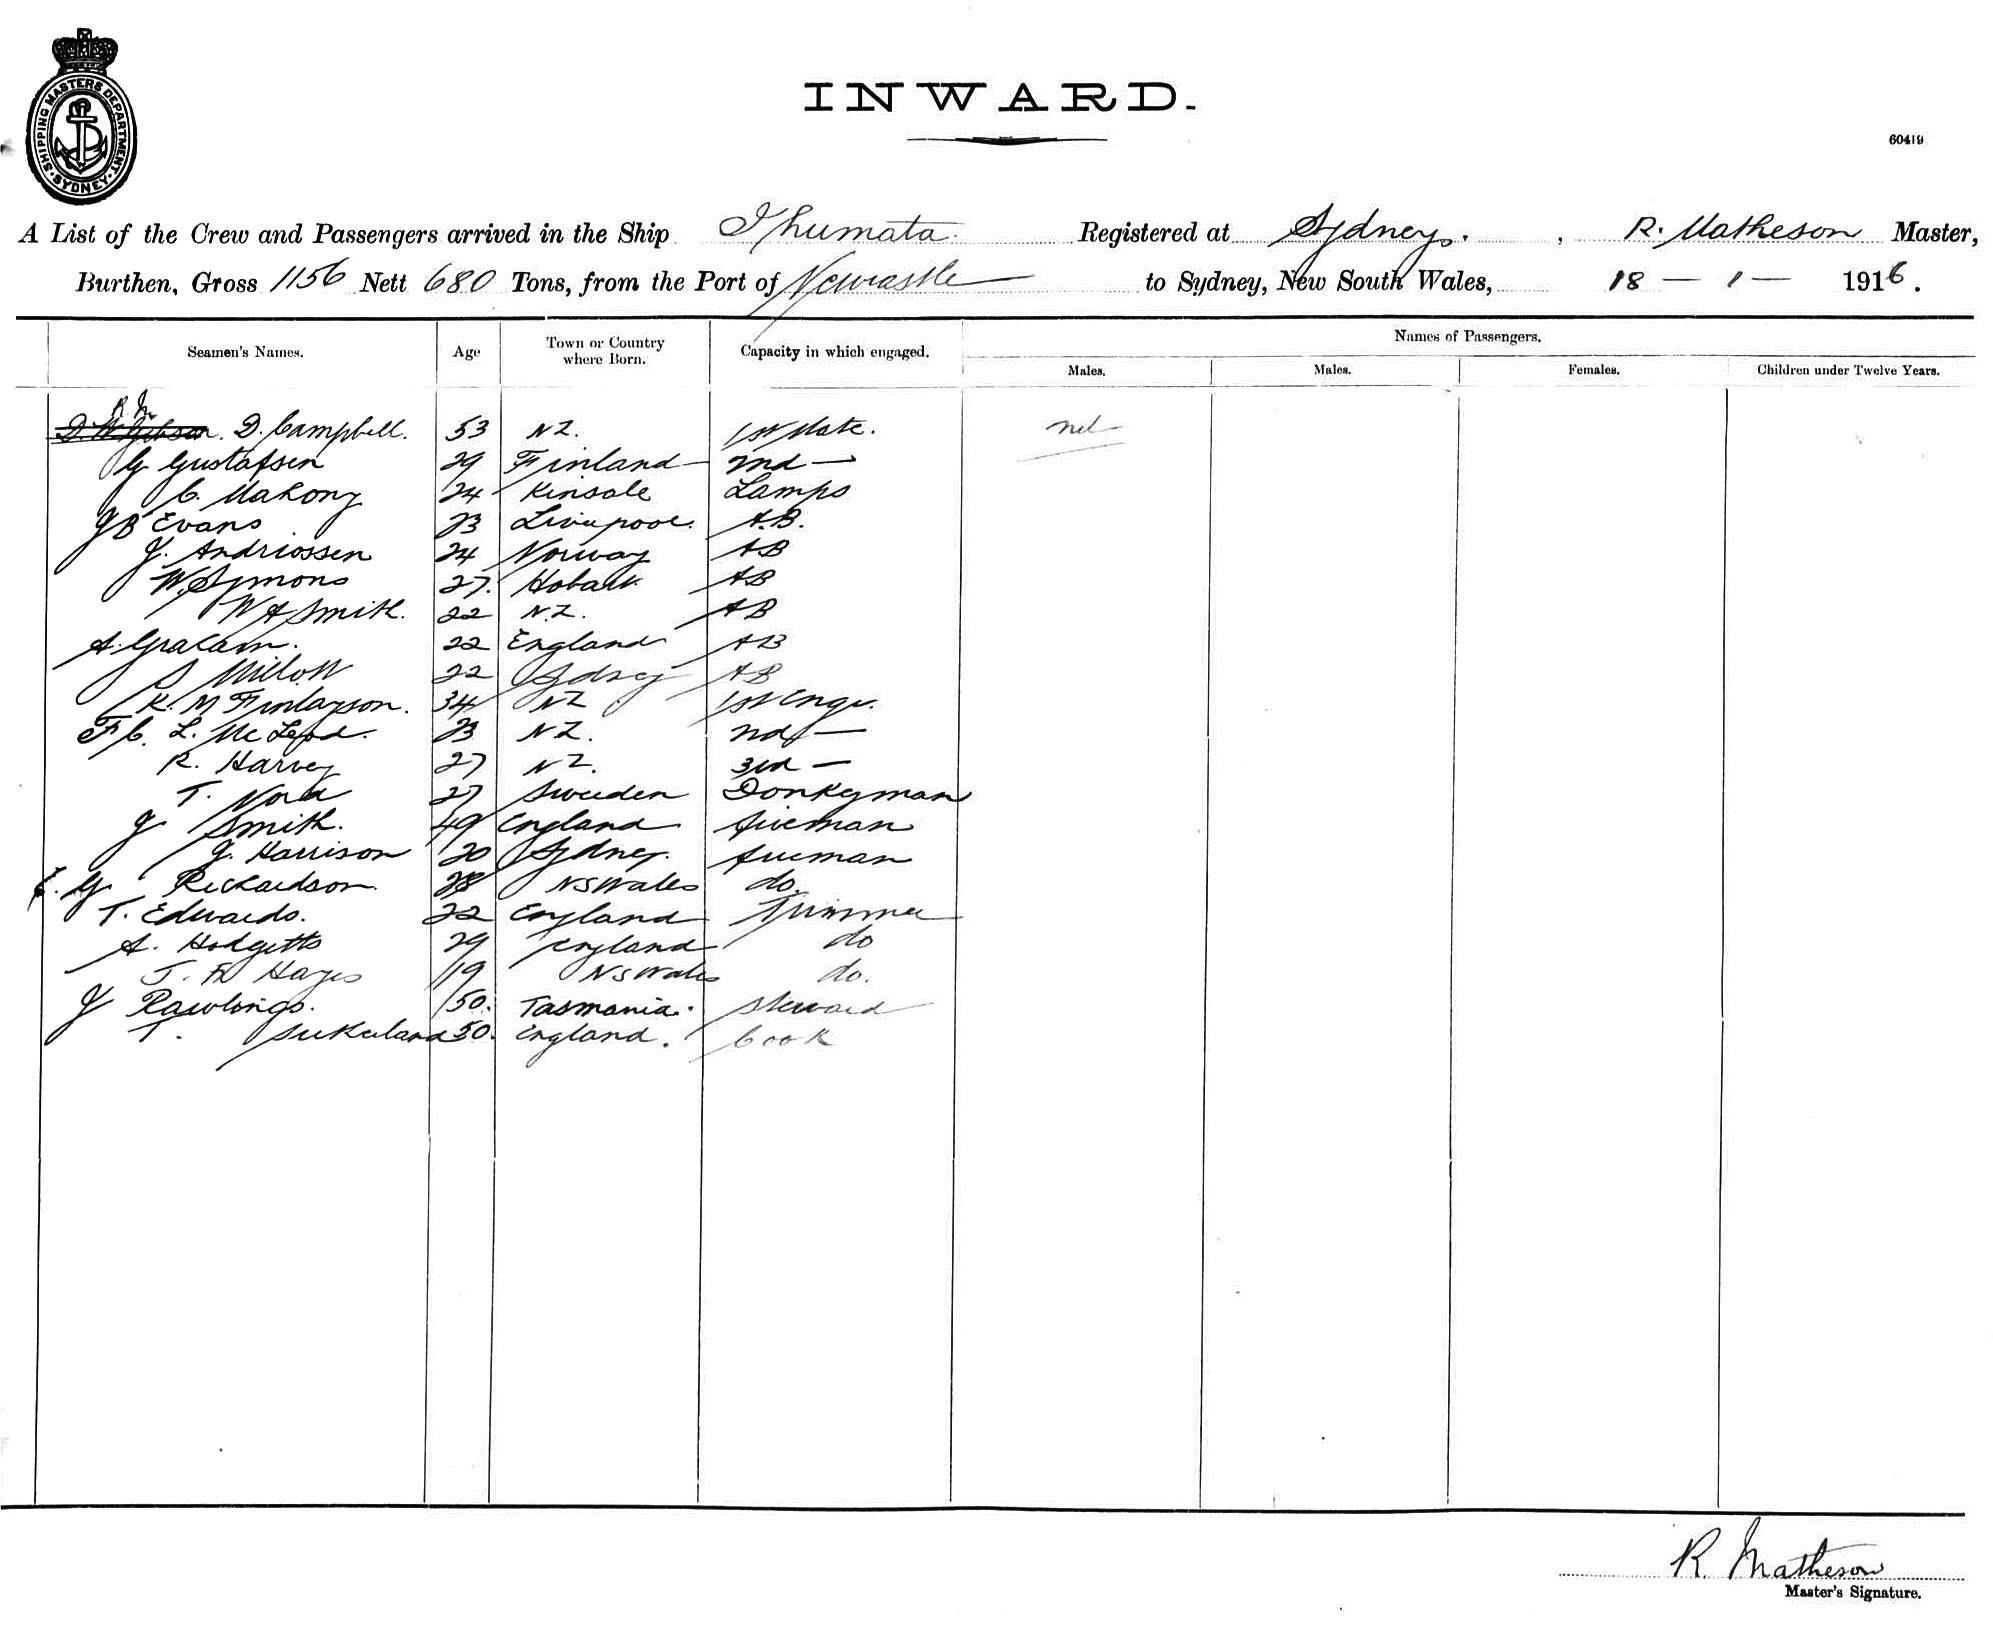 SHIPPING MASTERS DEPARTMENT · SYDNEY ·
INWARD.
60419
A List of the Crew and Passengers arrived in the Ship Ihumata. Registered at Sydney. , R. Matheson Master,
Burthen, Gross 1156 Nett 680 Tons, from the Port of Newcastle to Sydney, New South Wales, 18 — 1 — 1916.
Seamen's Names. Age Town or Country where Born. Capacity in which engaged. Names of Passengers.
Males. Males. Females. Children under Twelve Years.
R. M
D. W. Gibson. D. Campbell. 53 NZ. 1st Mate. nil
G Gustafsen 29 Finland 2nd —
C. Mahony 24 Kinsale Lamps
J B Evans 23 Liverpool. A.B.
J. Andriossen 24 Norway AB
W. Symons 27. Hobart AB
W A Smith. 22 N.Z. AB
A. Graham. 22 England AB
S 22 Sydney AB
K. M Finlayson. 34 NZ 1st Engr.
F C. L. McLeod. 23 NZ. 2nd —
R. Harvey 27 NZ. 3rd —
T. Nord 27 Sweden Donkyman
J Smith. 49 England fireman
J. Harrison 20 Sydney. fireman
G Richardson. 28 NSWales do.
T. Edwards. 22 England Trimmer
A. Hodgetts 29 England do
J. Hayes 19 NSWales do.
J Rawlings. 50. Tasmania. Steward
T. Sutherland 50. England. Cook
R. Matheson
Master's Signature.